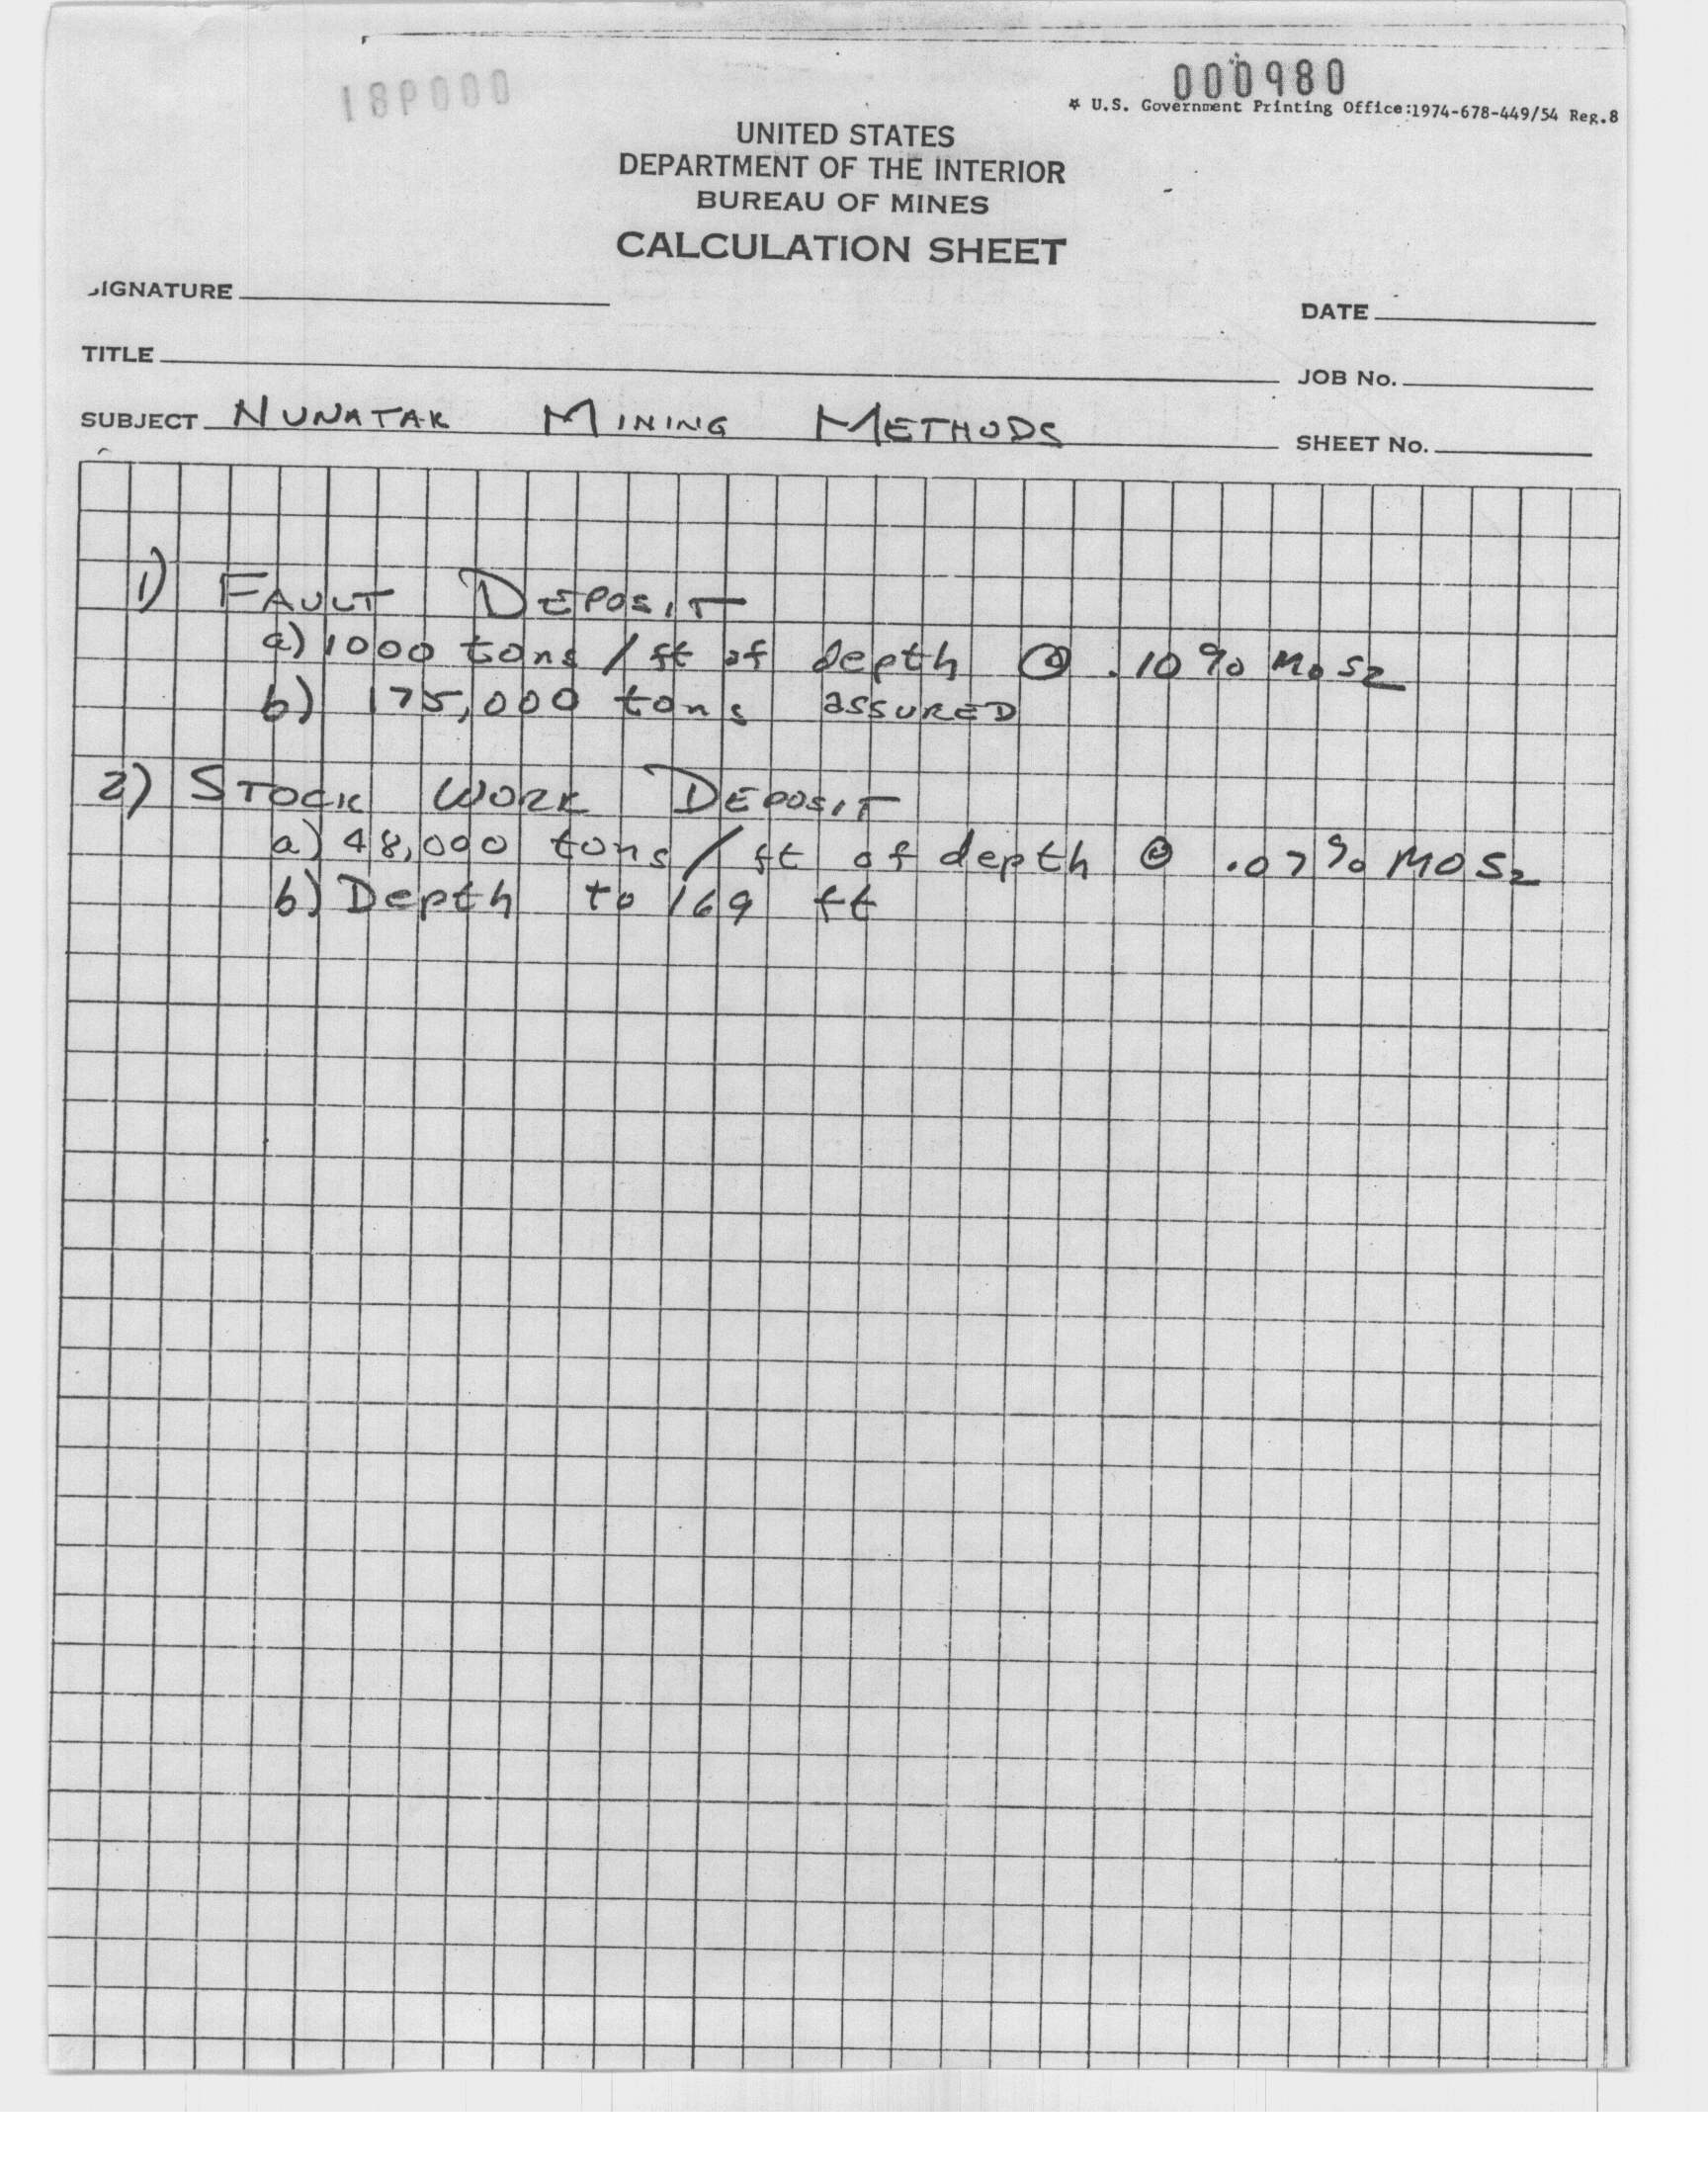 000980
☆ U.S. Government Printing Office:1974-678-449/54 Reg.8
UNITED STATES
DEPARTMENT OF THE INTERIOR
BUREAU OF MINES
CALCULATION SHEET
SIGNATURE
DATE
TITLE
JOB No.
SUBJECT NUNATAK MINING METHODS
SHEET No.
1) FAULT DEPOSIT
a) 1000 tons / ft of depth @ .10 % MoS2
b) 175,000 tons assured
2) STOCK WORK DEPOSIT
a) 48,000 tons / ft of depth @ .07 % MoS2
b) Depth to 169 ft